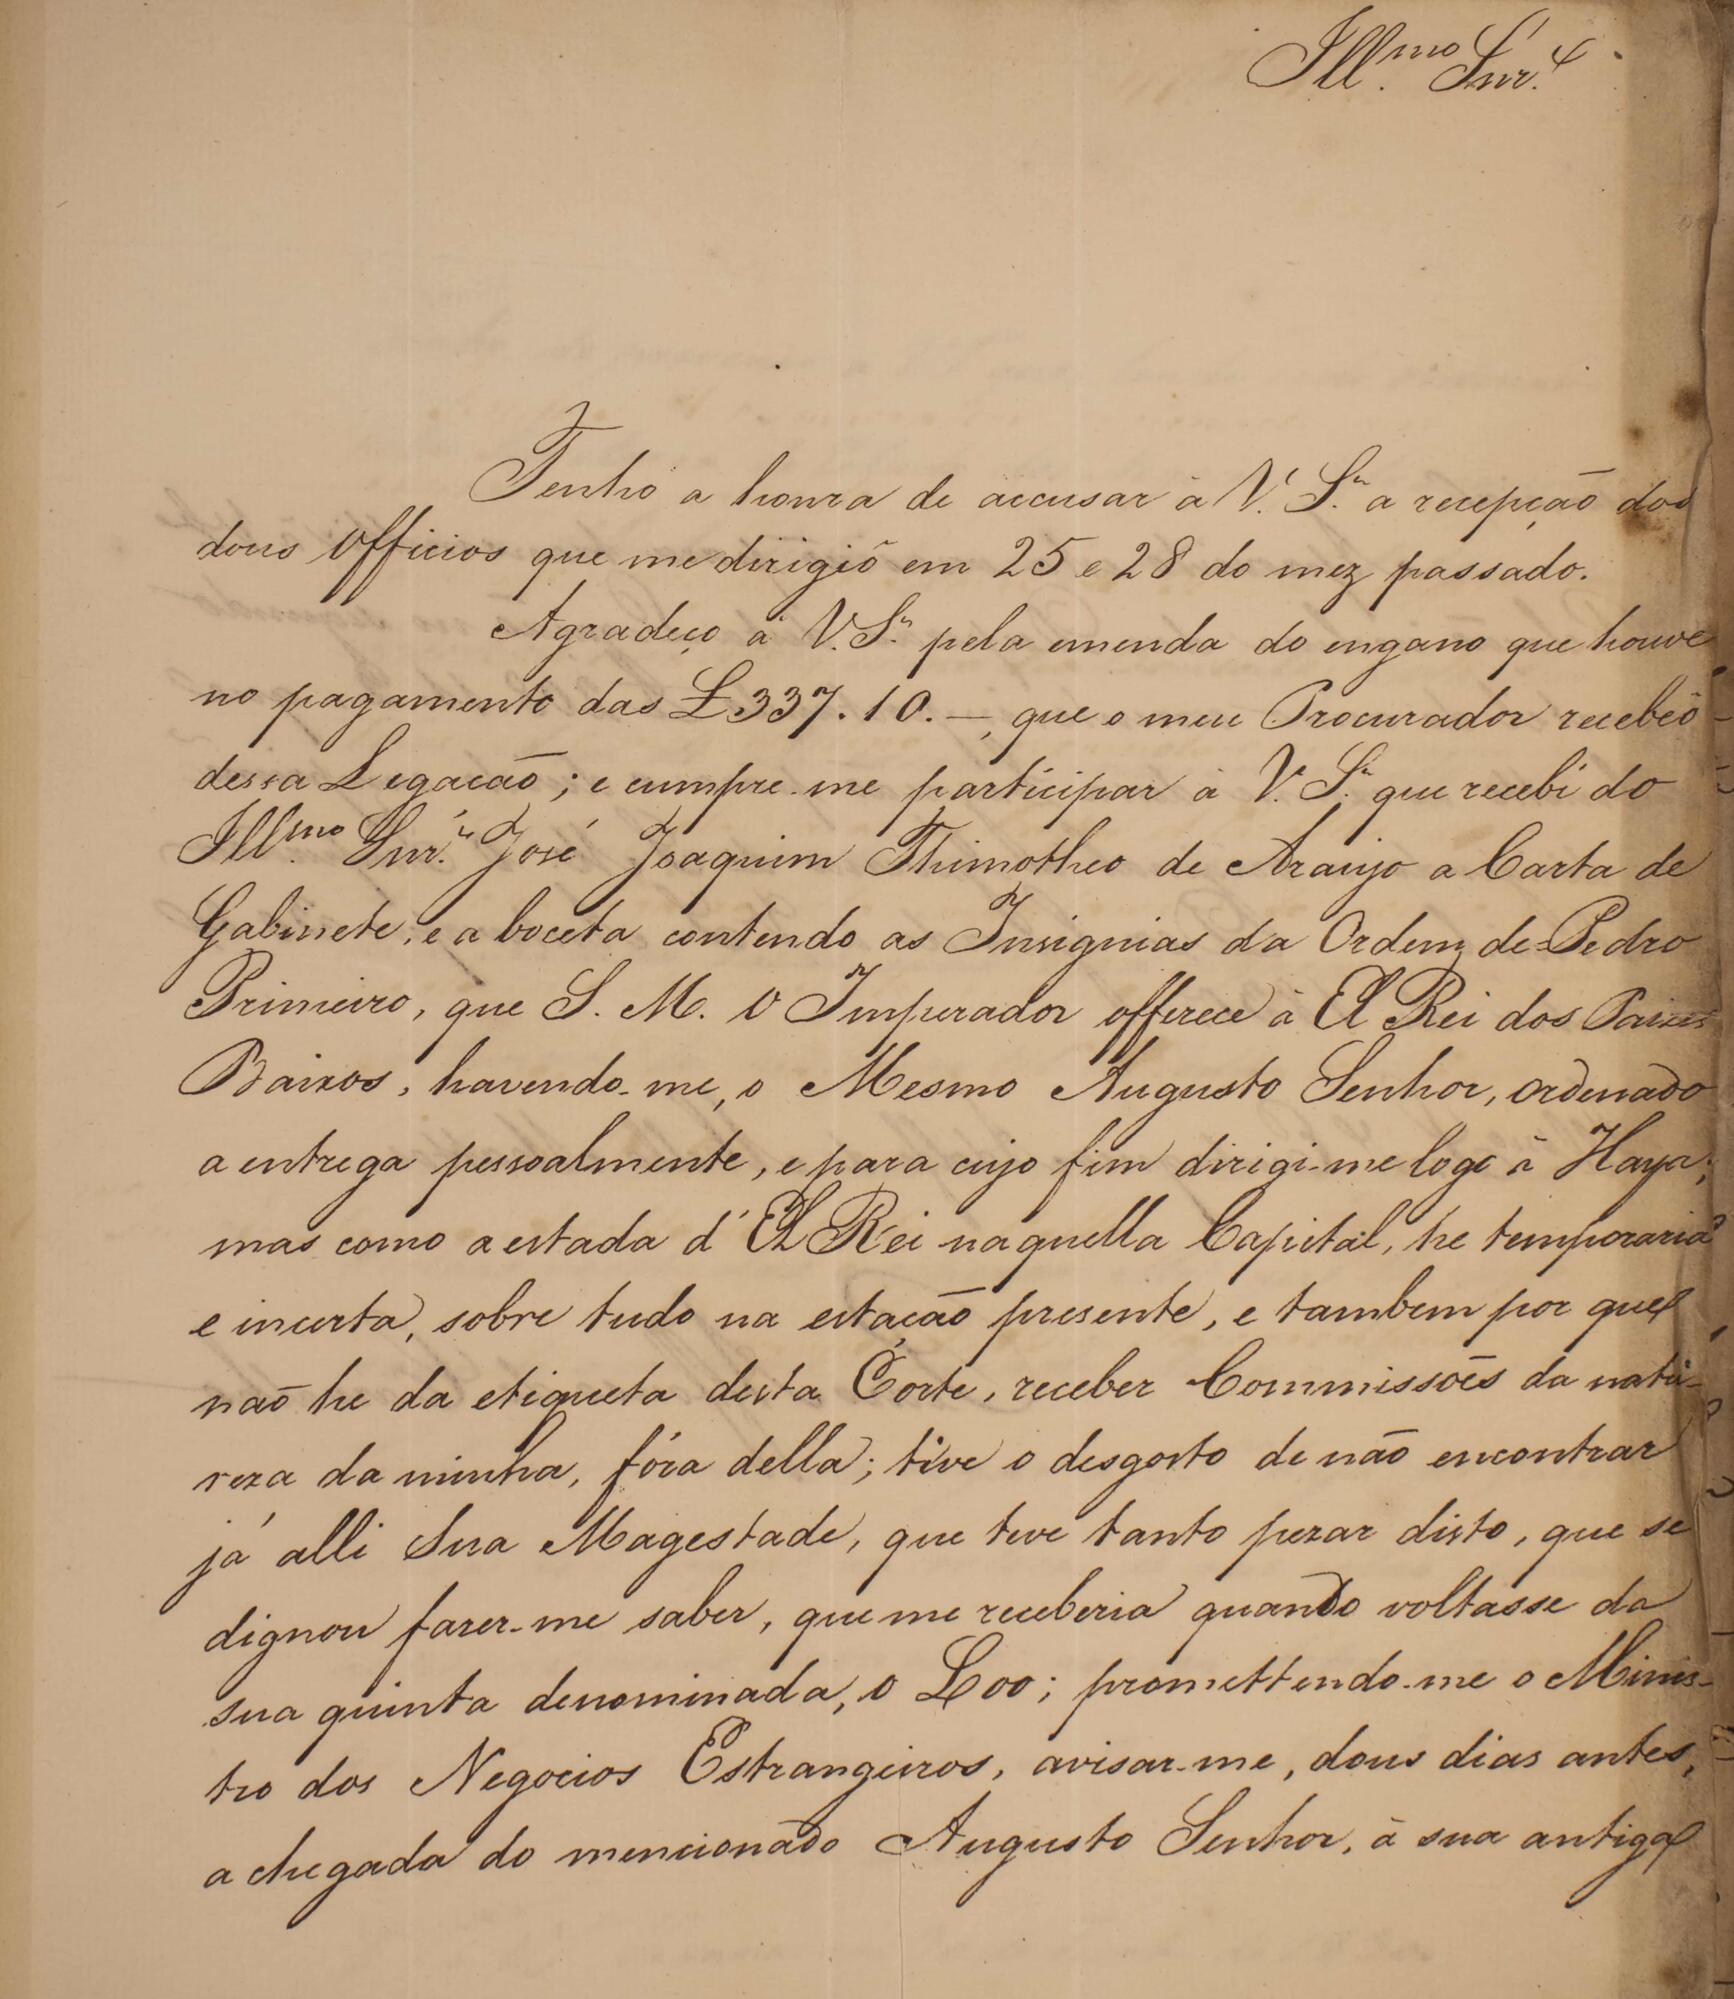 Ill.mo Snr.
Tenho a honra de accusar à V. S.a a recepção dos
dous Officios que me dirigiõ em 25 e 28 do mez passado.
Agradeço à V. S.a pela emenda do engano que houve
no pagamento das £ 337. 10. —, que o meu Procurador recebêo
dessa Legação; e cumpre-me participar à V. S.a que recebi do
Ill.mo Snr. José Joaquim Thimotheo de Araujo a Carta de
Gabinete, e a boceta contendo as Insignias da Ordem de Pedro
Primeiro, que S. M. O Imperador offerece à El Rei dos Paizes
Baixos, havendo-me, o Mesmo Augusto Senhor, ordenado
a entrega pessoalmente, e para cujo fim dirigi-me logo à Haya;
mas como a estada d'El Rei naquella Capital, he temporaria
e incerta, sobre tudo na estação presente, e tambem por que
não he da etiqueta desta Côrte, receber Commissões da natu-
reza da minha, fóra della; tive o desgosto de não encontrar
já alli Sua Magestade, que teve tanto pezar disto, que se
dignou fazer-me saber, que me receberia quando voltasse da
sua quinta denominada, o Loo; promettendo-me o Minis-
tro dos Negocios Estrangeiros, avisar-me, dous dias antes,
a chegada do mencionado Augusto Senhor, à sua antiga